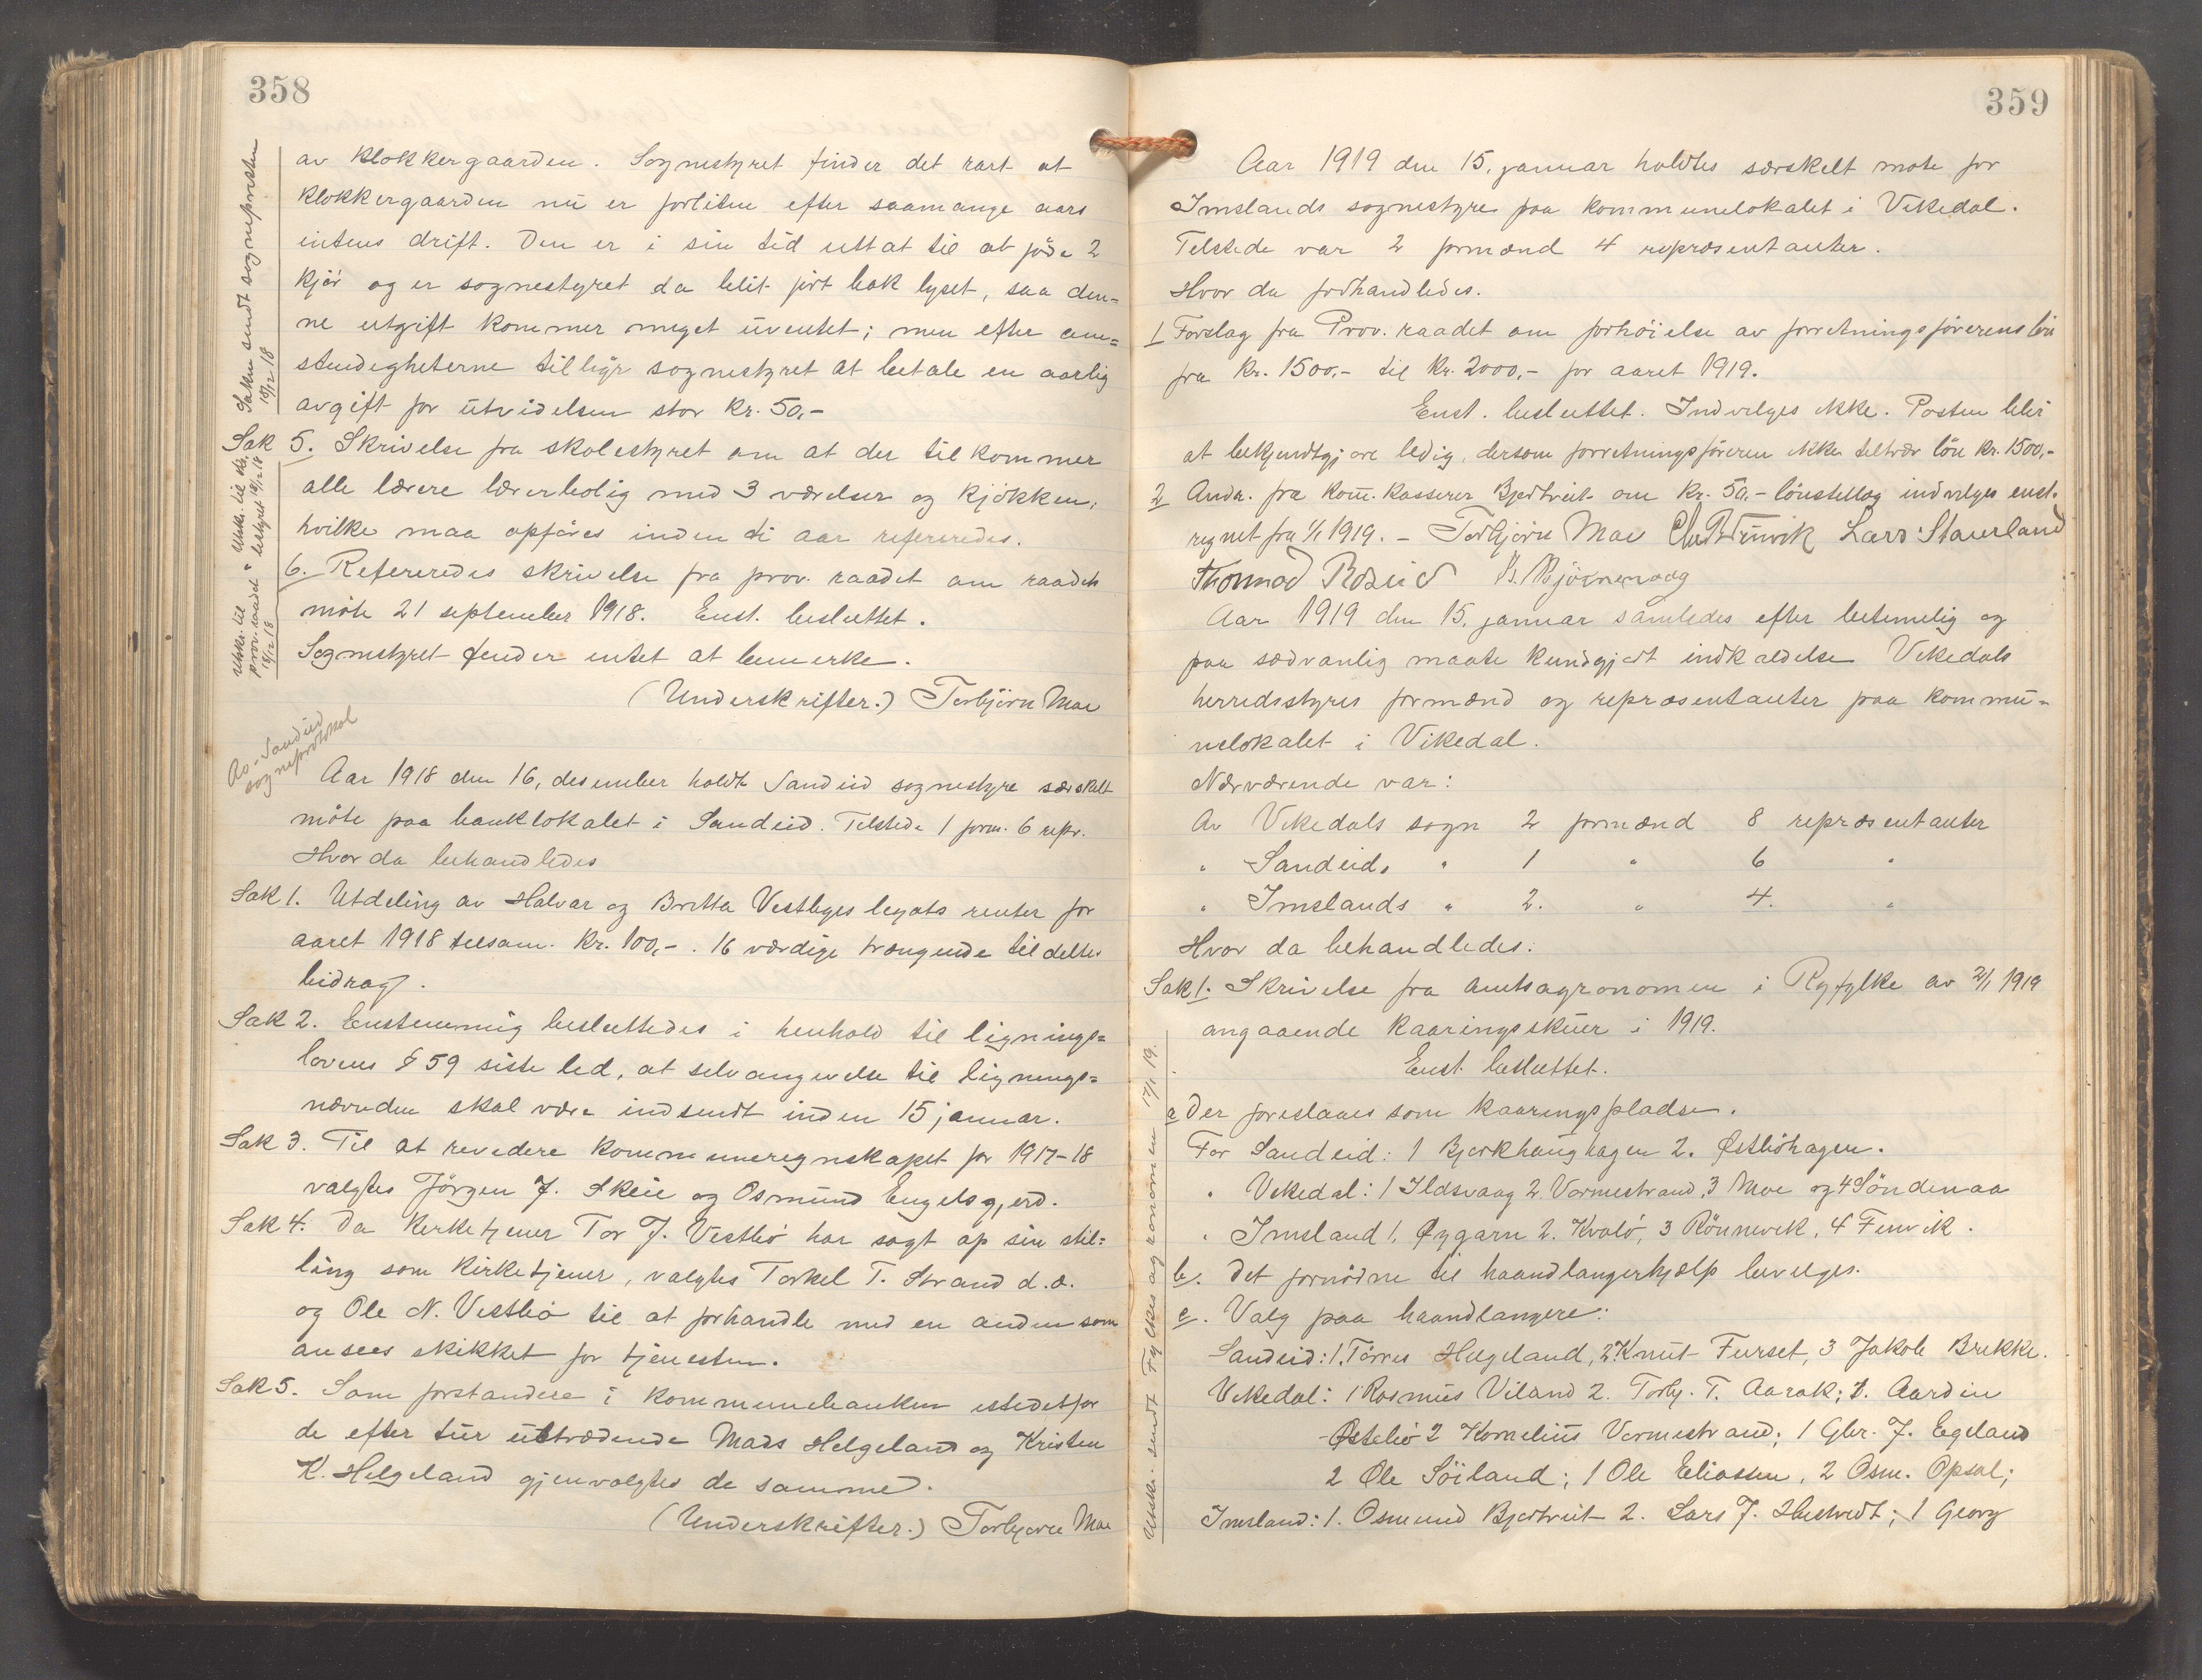 358
av klokkergaarden. Sognestyret finder det rart at
klokkergaarden nu er forliten efter saamange aars
intens drift. Den er i sin tid uttat til at föde 2
kjör og er sognestyret da blit fört bak lyset, saa den=
ne utgift kommer meget uventet; men efter om=
stendigheterne tilbyr sognestyret at betale en aarlig
avgift for utvidelsen stor kr. 50,-
Saken sendt sognepresten
18/12 18
Sak 5. Skrivelse fra skolestyret om at der tilkommer
alle lærere lærerbolig med 3 værelser og kjökken,
hvilke maa opföres inden ti aar refereredes.
Utskr. til sko-
lestyret 18/12 18
6. Refereredes skrivelse fra prov. raadet om raadets
möte 21 september 1918. Enst. besluttet.
Sognestyret finder intet at bemerke.
Utskr. til
prov. raadet
18/12 18
(Underskrifter.) Torbjörn Moe
Av Sandeid
sogneprotokol
Aar 1918 den 16, desember holdt Sandeid sognestyre særskilt
möte paa banklokalet i Sandeid. Tilstede 1 form. 6 repr.
Hvor da behandledes
Sak 1. Utdeling av Halvar og Britta Vestbøes legats renter for
aaret 1918 tilsam. kr. 100,-. 16 værdige trængende tildeltes
bidrag.
Sak 2. Enstemmig besluttedes i henhold til lignings=
lovens § 59 siste led, at selvangivelse til lignings=
nævnden skal være indsendt inden 15 januar.
Sak 3. Til at revidere kommuneregnskapet for 1917-18
valgtes Jörgen J. Skeie og Osmund Engelsgjerd.
Sak 4. Da kirketjener Tor J. Vestbö har sagt op sin stil=
ling som kirketjener, valgtes Torkel T. Strand d.æ.
og Ole N. Vestbö til at forhandle med en anden som
ansees skikket for tjenesten.
Sak 5. Som forstandere i kommunebanken istedetfor
de efter tur uttrædende Mads Helgeland og Kristen
K. Helgeland gjenvalgtes de samme.
(Underskrifter.) Torbjörn Moe
359
Aar 1919 den 15, januar holdtes særskelt möte for
Imslands sognestyre paa kommunelokalet i Vikedal.
Tilstede var 2 formænd 4 repræsentanter.
Hvor da forhandledes.
1 Forslag fra Prov. raadet om forhöielse av forretningsförerens lön
fra kr. 1500,- til kr. 2000,- for aaret 1919.
Enst. besluttet. Indvilges ikke. Posten blir
at bekjendtgjøre ledig, dersom forretningsföreren ikke tiltrær lön kr. 1500,-
2 Andr. fra kom. kasserer Bjertveit om kr. 50,- lönstillæg indvilges enst.
regnet fra 1/1 1919. - Torbjörn Moe Lars Staurland
Thormod Röseid
Aar 1919 den 15, januar samledes efter betimelig og
paa sædvanlig maate kundgjort indkaldelse Vikedals
herredsstyres formænd og repræsentanter paa kommu=
nelokalet i Vikedal.
Nærværende var:
Av Vikedals sogn 2 formænd 8 repræsentanter
" Sandeids " 1 " 6 "
" Imslands " 2. " 4. "
Hvor da behandledes:
Sak 1. Skrivelse fra amtsagronomen i Ryfylke av 2/1 1919
angaaende kaaringsskuer i 1919.
Enst. besluttet.
Utsk. sendt Fylkesagronomen 17/1 19.
a Der foreslaaes som kaaringspladse.
For Sandeid: 1 Bjerkhaughagen 2. Østböhagen.
" Vikedal: 1 Ildsvaag 2. Vormestrand, 3 Moe og 4 Söndenaa
" Imsland 1. Øygarn 2. Kvalö, 3 Rönnevik, 4 Fenvik.
b. Det fornödne til haandlangerhjælp bevilges.
c. Valg paa haandlangere:
Sandeid: 1. Törres Helgeland, 2 Knut Furset, 3 Jakob Brekke.
Vikedal: 1 Rasmus Viland 2. Torb. T. Aarak; 1. Aardin
Østebö 2 Kornelius Vormestrand; 1 Gbr. J. Egeland
2 Ole Söiland; 1 Ole Eliassen, 2 Osm. Opsal;
Imsland: 1. Osmund Bjertveit 2. Lars J. Hustvedt; 1 Georg